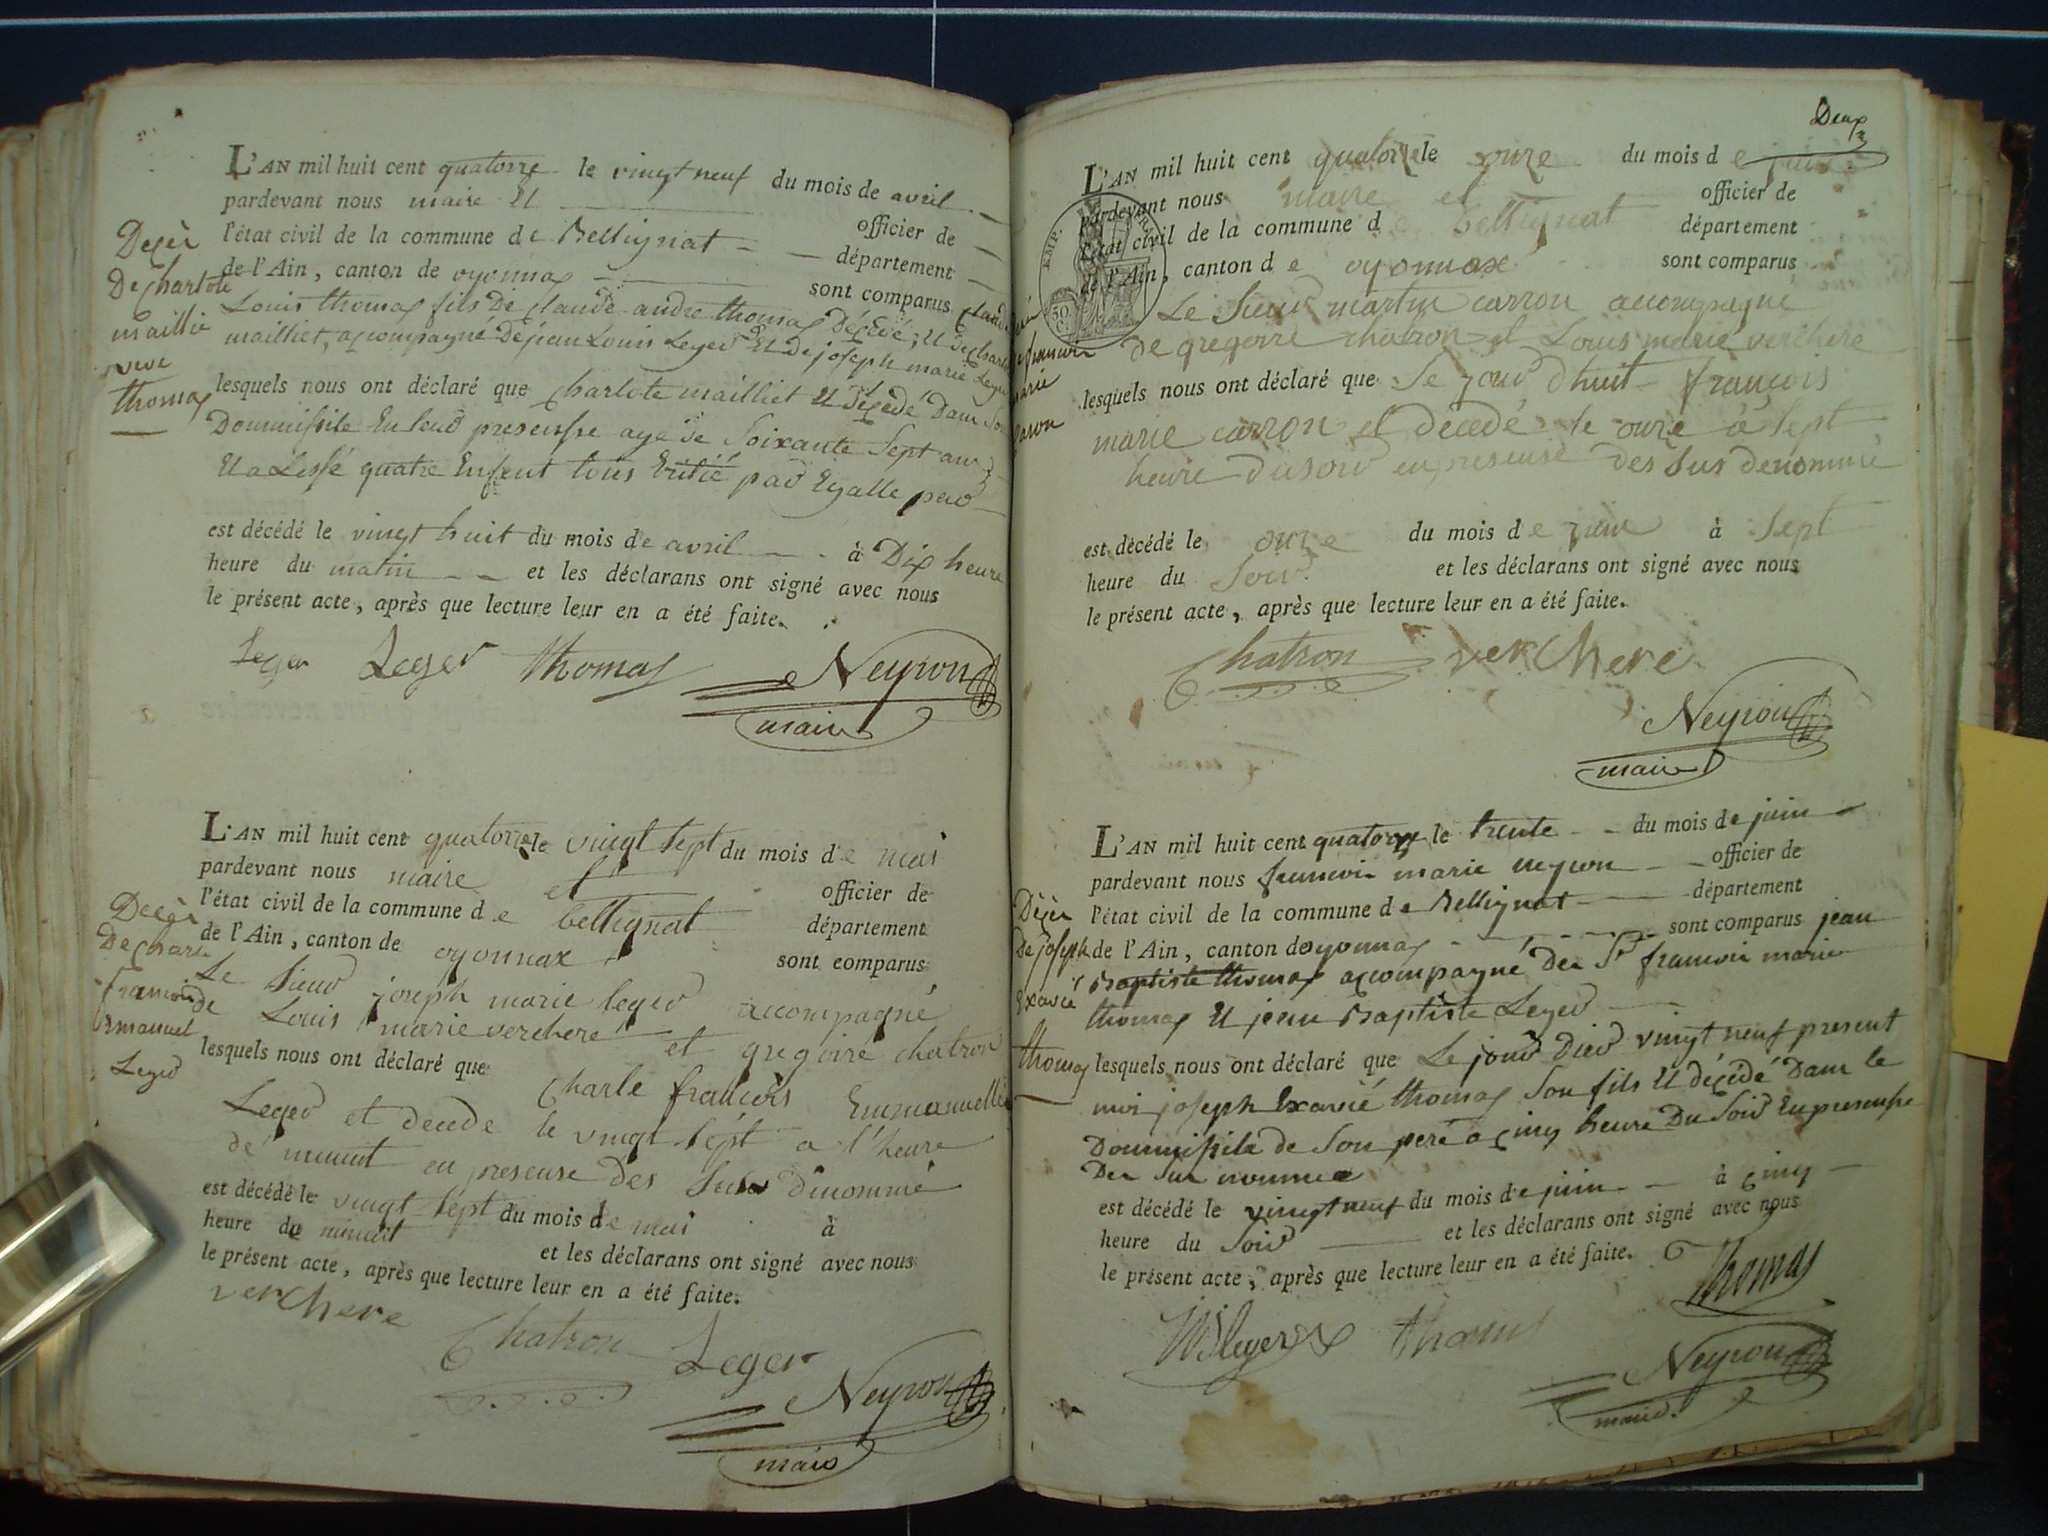 L'AN mil huit cent quatorze le vingt neuf du mois de avril
pardevant nous maire Et officier de
l'état civil de la commune de Bellignat département
de l'Ain, canton de oyonnax sont comparus Claude
Louis thomas fils De Claude andre thomas Décédé, Et De Charlote
mailliet, acompagné De jean Louis Leger Et de joseph marie Leger
lesquels nous ont déclaré que Charlote mailliet Et Décédé Dans Son
Dommissile En leur presensse agé de Soixante Sept ans
Et a Lessé quatre Enfent tous Eritié par Egalle
est décédé le vingt huit du mois de avril à Dix heure
heure du matin et les déclarans ont signé avec nous
le présent acte, après que lecture leur en a été faite.
Leger Leger thomas Neyron
maire
Decèr
De Charlote
maillie
veve
thomas
L'AN mil huit cent quatorze le vingt sept du mois de mai
pardevant nous maire et officier de
l'état civil de la commune de bellignat département
de l'Ain, canton de oyonnax sont comparus
Le Sieur joseph marie leger accompagné
de Louis marie verchere et gregoire chatron
lesquels nous ont déclaré que Charle françois Emmanuelle
Leger et decede le vingt sept a l'heure
de minuit en presense des Sus Dénommé
est décédé le vingt sept du mois de mai à
heure du minuit et les déclarans ont signé avec nous
le présent acte, après que lecture leur en a été faite.
verchere Chatron Leger
Neyron
maire
Decèr
De Charle
francois
Emanuel
Leger
Deux
L'AN mil huit cent quatorze le onze du mois de juin
pardevant nous maire et officier de
l'état civil de la commune de bellignat département
de l'Ain, canton de oyonnax sont comparus
Le Sieur martin carron accompagné
de gregoire chatron et Louis marie verchere
lesquels nous ont déclaré que Le jour dhuit françois
marie carron et décédé le onze à sept
heure du soir en presense des sus denommé
est décédé le onze du mois de juin à sept
heure du Soir et les déclarans ont signé avec nous
le présent acte, après que lecture leur en a été faite.
Chatron verchere
Neyron
maire
francois
marie
caron
L'AN mil huit cent quatorze le trente du mois de juin
pardevant nous francois marie neyron officier de
l'état civil de la commune de Bellignat département
de l'Ain, canton de oyonnax sont comparus jean
Baptiste thomas acompagné Des Sr francois marie
thomas Et jean Baptiste Leger
lesquels nous ont déclaré que Le jour Dier vingt neuf present
mois joseph Exavié thomas Son fils Et décédé Dans le
Dommissile de Son pere a cinq heure Du Soir En presensse
Des Sus nommee
est décédé le vingt neuf du mois de juin à cinq
heure du Soir et les déclarans ont signé avec nous
le présent acte, après que lecture leur en a été faite.
Thomas
thomas
Neyron
maire
Décèr
De joseph
Exavié
thomas